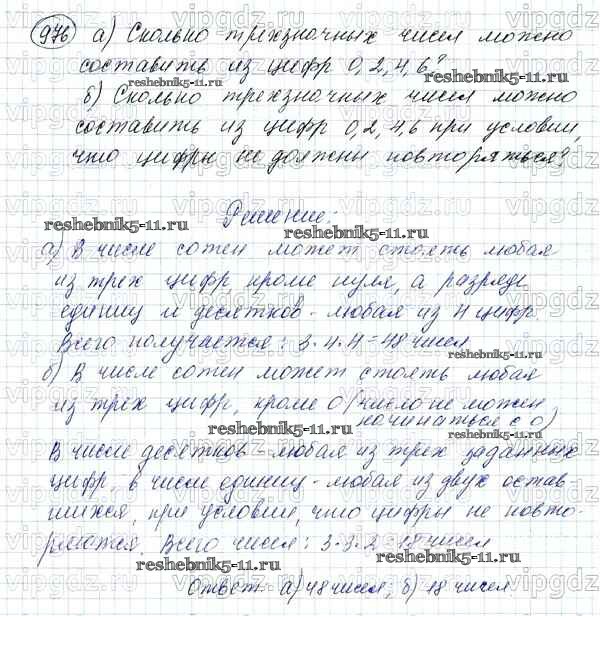 976 а) Сколько трехзначных чисел можно
составить из цифр 0,2,4,6?
б) Сколько трехзначных чисел можно
составить из цифр 0,2,4,6 при условии,
что цифры не должны повторяться?
Решение:
а) В числе сотен может стоять любая
из трех цифр, кроме нуля, а разряде
единиц и десятков - любая из 4 цифр.
Всего получается: 3·4·4=48 чисел.
б) В числе сотен может стоять любая
из трех цифр, кроме 0 (число не может
начинаться с 0)
В числе десятков - любая из трех заданных
цифр, в числе единиц - любая из двух остав
шихся, при условии, что цифры не повто-
ряются. Всего чисел: 3·3·2=18 чисел
Ответ: а) 48 чисел; б) 18 чисел.
reshebnik5-11.ru
vipgdz.ru